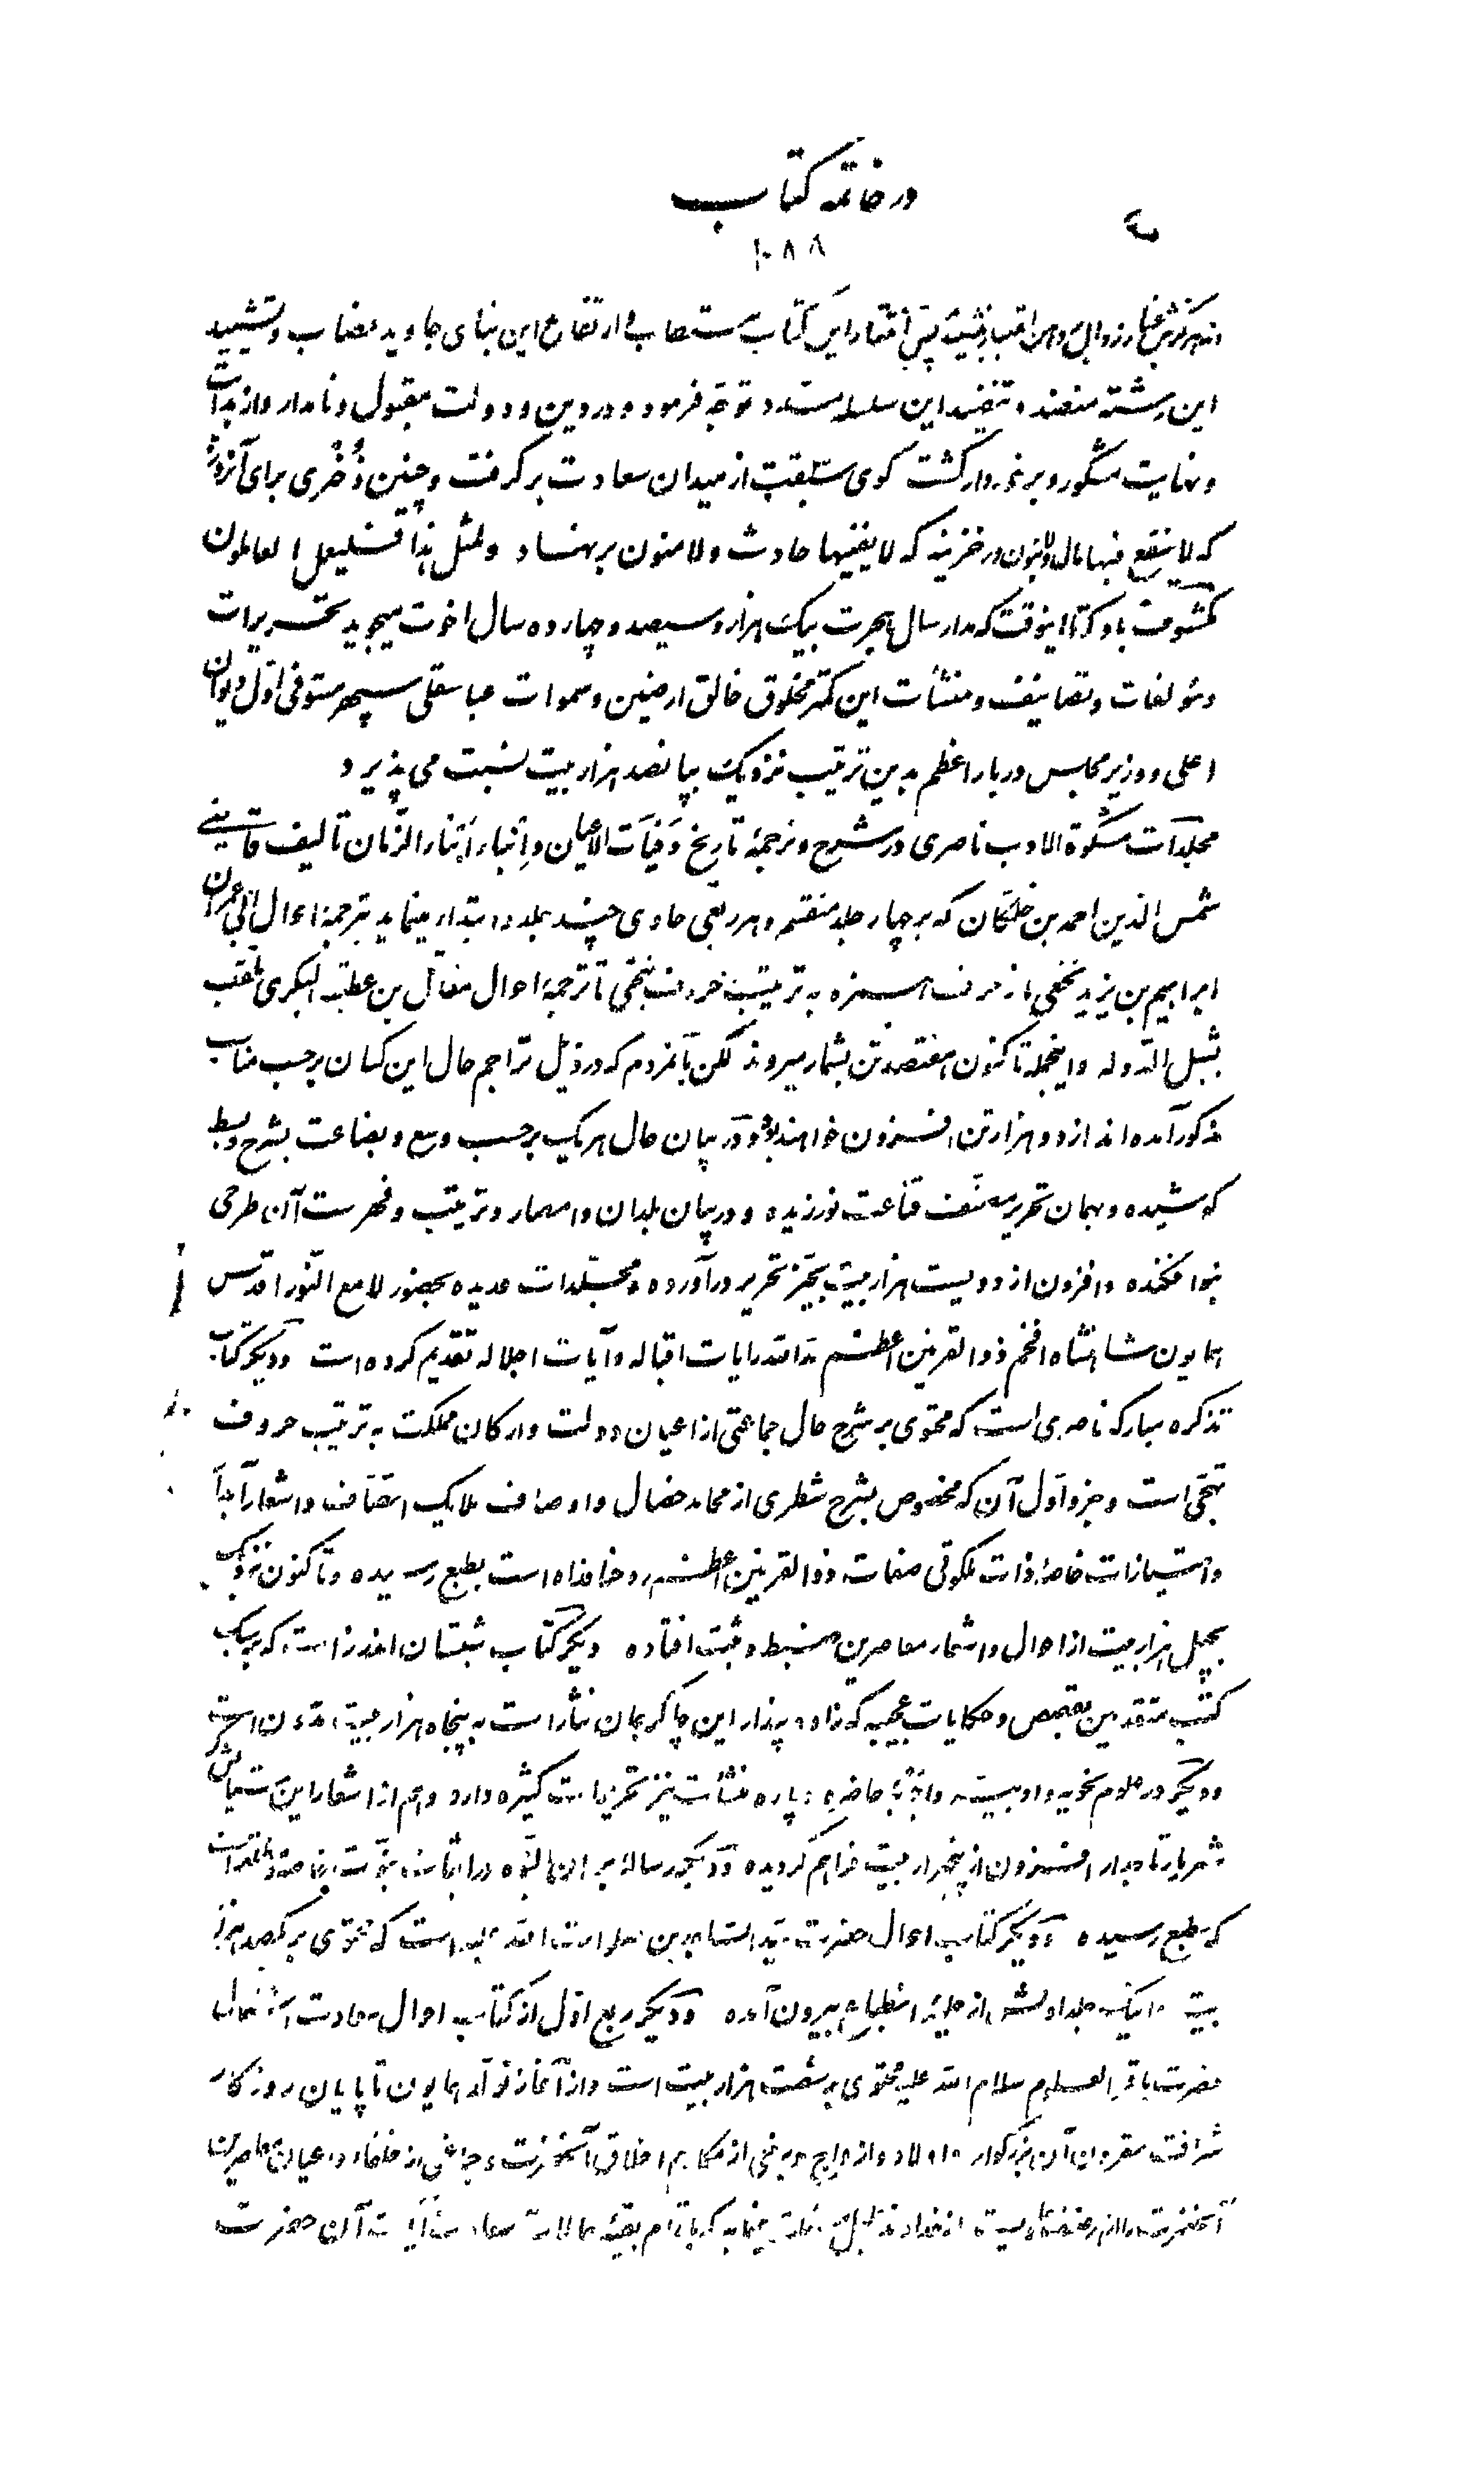 در خاتمه کتاب
۱۰۸۸
این کتاب مستطاب و ارتفاع این بنای جاوید و تشیید
این رشته منضد و تنضید این سلسله مسدد توجّه فرمود و در دین و دولت مقبول و نامدار و از بدایت
و نهایت مشکور و برخوردار گشت گوی سبقت از میدان سعادت برگرفت و چنین ذُخْری برای آنروز
که لا ینفع فیها مال و لا بنون در خزینه که لا یفنیها حادث و لا منون بر نهاد و لمثل هذا فلیعمل العاملون
مکشوف باد که تا اینوقت که مدار سال هجرت بیک هزار و سیصد و چهارده سال اخوت میجوید تحریرات
و مؤلفات و تصانیف و منشأت این کمتر مخلوق خالق ارضین و سموات عباسقلی سپهر مستوفی اوّل دیوان
اعلی و وزیر مجلس دربار اعظم بدین ترتیب نزدیک بپانصد هزار بیت نسبت می پذیرد
مجلدات مشکوة الادب ناصری در شرح و ترجمهٔ تاریخ وَفیَات الاعیان و انباء ابناء الزّمان تألیف قاضی
شمس الدین احمد بن خلّکان که بر چهار جلد منقسم و هر ربعی حاوی چند مجلد و ابتدا مینماید بترجمهٔ احوال ابی عمران
ابراهیم بن یزید نخعی از حرف همزه به ترتیب حروف تهجّی تا ترجمهٔ احوال مقاتل بن عطیّه البکری ملقب
بشبل الدّوله و اینجمله تا کنون هفتصد تن بشمار میروند لکن با مردم که در ذیل تراجم حال این کسان برحسب مناسبت
مذکور آمده‌اند از دو هزار تن افزون خواهند بود و در بیان حال هر یک برحسب وسع و بضاعت بشرح و بسط
کوشیده و بهمان تحریر مصنّف قناعت نورزیده و در بیان بلدان و امصار و ترتیب و فهرست آن طرحی
نو افکنده و افزون از دویست هزار بیت بحیّز تحریر درآورده و مجلّدات عدیده بحضور لامع النّور اقدس
همایون شاهنشاه افخم ذوالقرنین اعظم مدّ الله رایات اقباله و آیات اجلاله تقدیم کرده است و دیگر کتاب
تذکره مبارکه ناصری است که محتوی بر شرح حال جماعتی از اعیان دولت و ارکان مملکت به ترتیب حروف
تهجّی است و جزو اوّل آن که مخصوص بشرح شطری از محامد خصال و اوصاف ملایک اتّصاف و اشعار آبدار
و امتیازات خاصهٔ ذات ملکوتی صفات ذوالقرنین اعظم روحنا فداه است بطبع رسیده و تا کنون نزدیک
بچهل هزار بیت از احوال و اشعار معاصرین ضبط و ثبت افتاده دیگر کتاب شبستان اندرز است که بر سبک
کتب متقدمین بقصص و حکایات عجیبه که زاده پندار این چاکر جان نثار است به پنجاه هزار بیت مدّون است
و دیگر در علوم نحویه و ادبیّت و اجوبهٔ حاضره و پاره منشأت نیز تحریرات کثیره دارد و هم از اشعار این ستایش گر
شهریار تاجدار افزون از پنجهزار بیت فراهم گردیده و دیگر رسالهٔ برهان النبوّه در اثبات نبوّت خاصه
که بطبع رسیده و دیگر کتاب احوال حضرت سیّد السّاجدین صلوات الله علیه است که محتوی بر یکصد هزار
بیت و اینک جلد اولش از حلیهٔ انطباع بیرون آمده و دیگر ربع اوّل از کتاب احوال سعادت اشتمال
حضرت باقر العلوم سلام الله علیه محتوی بر شصت هزار بیت است و از آغاز تولّد همایون تا پایان روزگار
شرافت مقرون آن بزرگوار و اولاد و ازواج و برخی از مکارم اخلاق آنحضرت و جماعتی از خلفاء و اعیان معاصرین
بقیّه حالات سعادت آیات آن حضرت